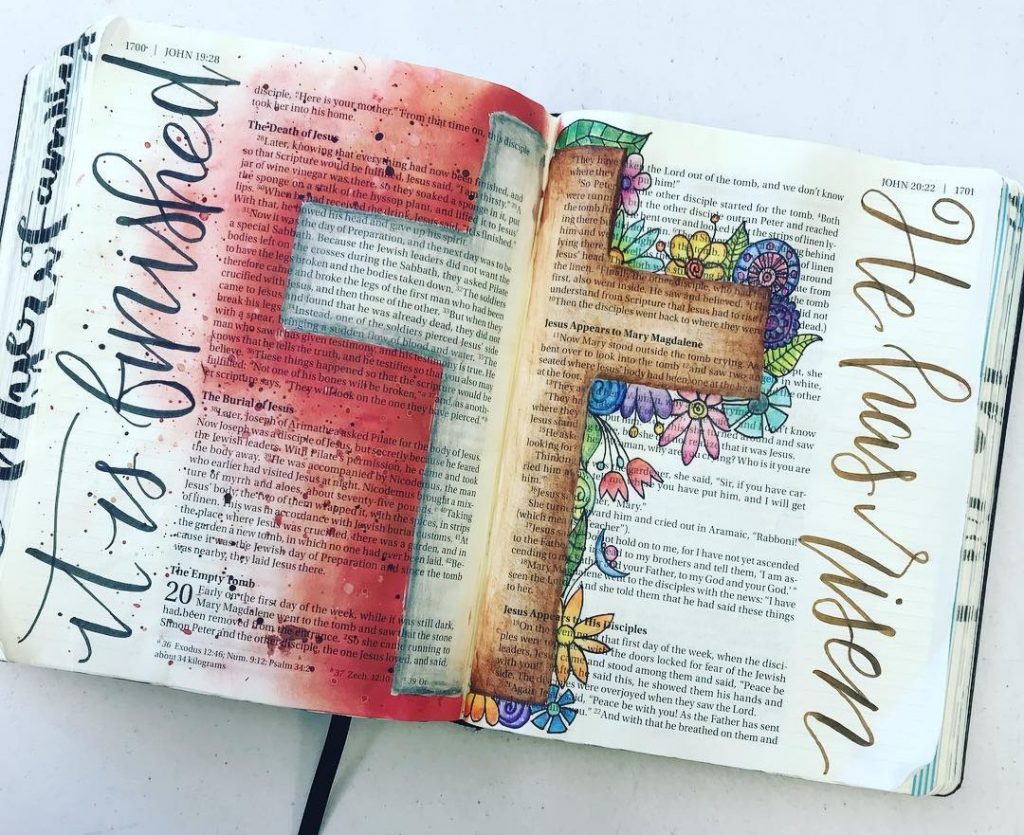 1700 | JOHN 19:28
it is finished
disciple, "Here is your mother." From that time on, this disciple
took her into his home.
The Death of Jesus
28Later, knowing that everything had now been finished, and
so that Scripture would be fulfilled, Jesus said, "I am thirsty." 29A
jar of wine vinegar was there, so they soaked a sponge in it, put
the sponge on a stalk of the hyssop plant, and lifted
lips. 30When he had received the drink, Jesus said, is finished."
With that, he bowed his head and gave up his spirit.
31Now it was the day of Preparation, and the next day was to be
a special Sabbath. Because the Jewish leaders did not want the
bodies left on the crosses during the Sabbath, they asked Pilate
broken and the bodies taken down. 32The soldiers
therefore came and broke the legs of the first man who had been
crucified with Jesus, and then those of the other. 33But when they
came to Jesus and found that he was already dead, they did not
break his legs. 34Instead, one of the soldiers pierced Jesus' side
bringing a sudden flow of blood and water. 35The
man who saw it has given testimony, and his testimony is true. He
knows that he tells the truth, and he testifies so that you also may
believe. 36These things happened so that the scripture would be
fulfilled: "Not one of his bones will be broken," 37and, as anoth-
er scripture says, "They will look on the one they have pierced."
The Burial of Jesus
38Later, Joseph of Arimathea asked Pilate for the body of Jesus.
Now Joseph was a disciple of Jesus, but secretly because he feared
the Jewish leaders. With Pilate's permission, he came and took
the body away. 39He was accompanied by Nicodemus, the man
who earlier had visited Jesus at night. Nicodemus brought a mix-
ture of myrrh and aloes, about seventy-five pounds. 40Taking
Jesus' body, the two of them wrapped it, with the spices, in strips
of linen. This was in accordance with Jewish burial customs. 41At
the place where Jesus was crucified, there was a garden, and in
the garden a new tomb, in which no one had ever been laid. 42Be-
cause it was the Jewish day of Preparation and since the tomb
was nearby, they laid Jesus there.
The Empty Tomb
20 Early on the first day of the week, while it was still dark,
Mary Magdalene went to the tomb and saw that the stone
had been removed from the entrance. 2So she came running to
Simon Peter and the other disciple, the one Jesus loved, and said,
36 Exodus 12:46; Num. 9:12; Psalm 34:20 37 Zech. 12:10 39 Or
about 34 kilograms
JOHN 20:22 | 1701
He has risen
"They have taken the Lord out of the tomb, and we don't know
where they put him!"
3So Peter and the other disciple started for the tomb. 4Both
were running, but the other disciple outran Peter and reached
the tomb first. 5He bent over and looked in at the strips of linen ly-
ing there behind
linen
around
Jesus' head.
the linen. Finally the
first, also went inside. He saw and believed.
understand from Scripture that Jesus had to rise dead.)
10Then the disciples went back to where they were
Jesus Appears to Mary Magdalene
11Now Mary stood outside the tomb crying. As she
bent over to look into the tomb 12and saw two in white,
seated where Jesus' body had been, one at the
at the foot.
13They
"They don't know
where they
turned around and saw
Jesus stand realize that it was Jesus.
"He asked woman, why are crying? Who is it you are
looking for?"
Thinking gardener, she said, "Sir, if you have car-
ried him you have put him, and I will get
him."
16Jesus said "Mary."
She turned toward him and cried out in Aramaic, "Rabboni!"
(which means "Teacher").
17Jesus not hold on to me, for I have not yet ascended
to the Father. to my brothers and tell them, 'I am as-
cending to your Father, to my God and your God.'"
18Mary Magdalene went to the disciples with the news: "I have
seen the Lord!" And she told them that he had said these things
to her.
Jesus Appears to His Disciples
19On the evening that first day of the week, when the disci-
ples were the doors locked for fear of the Jewish
leaders, came and stood among them and said, "Peace be
with you!" After he said this, he showed them his hands and
side. The disciples were overjoyed when they saw the Lord.
21Again Jesus said, "Peace be with you! As the Father has sent
you." 22And with that he breathed on them and